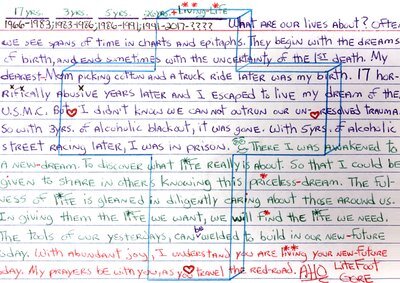 17 YRS. 3 YRS. 5 YRS. 26 YRS. + LIVING-LIFE
1966-1983;1983-1986;1986-1991;1991-2017-???? WHAT ARE OUR LIVES ABOUT? OFTEN
WE SEE SPANS OF TIME IN CHARTS AND EPITAPHS. THEY BEGIN WITH THE DREAMS
OF BIRTH, AND END SOMETIMES WITH THE UNCERTAINTY OF THE 1ST DEATH. MY
DEAREST-MOM PICKING COTTON AND A TRUCK RIDE LATER WAS MY BIRTH. 17 HOR-
RIFICALLY ABUSIVE YEARS LATER AND I ESCAPED TO LIVE MY DREAM OF THE
U.S.M.C. BUT I DIDN'T KNOW WE CAN NOT OUTRUN OUR UN-RESOLVED TRAUMA.
SO WITH 3YRS. OF ALCOHOLIC BLACKOUT, IT WAS GONE. WITH 5YRS. OF ALCOHOLIC
STREET RACING LATER, I WAS IN PRISON. THERE I WAS AWAKENED TO
A NEW-DREAM. TO DISCOVER WHAT LIFE REALLY IS ABOUT. SO THAT I COULD BE
GIVEN TO SHARE IN OTHERS KNOWING THIS PRICELESS-DREAM. THE FUL-
NESS OF LIFE IS GLEANED IN DILIGENTLY CARING ABOUT THOSE AROUND US.
IN GIVING THEM THE LIFE WE WANT, WE WILL FIND THE LIFE WE NEED.
THE TOOLS OF OUR YESTERDAYS, CAN BE WELDED TO BUILD IN OUR NEW-FUTURE
TODAY. WITH ABUNDANT JOY, I UNDERSTAND YOU ARE LIVING YOUR NEW-FUTURE
TODAY. MY PRAYERS BE WITH YOU, AS YOU TRAVEL THE RED-ROAD. AHO LITEFOOT
GORE